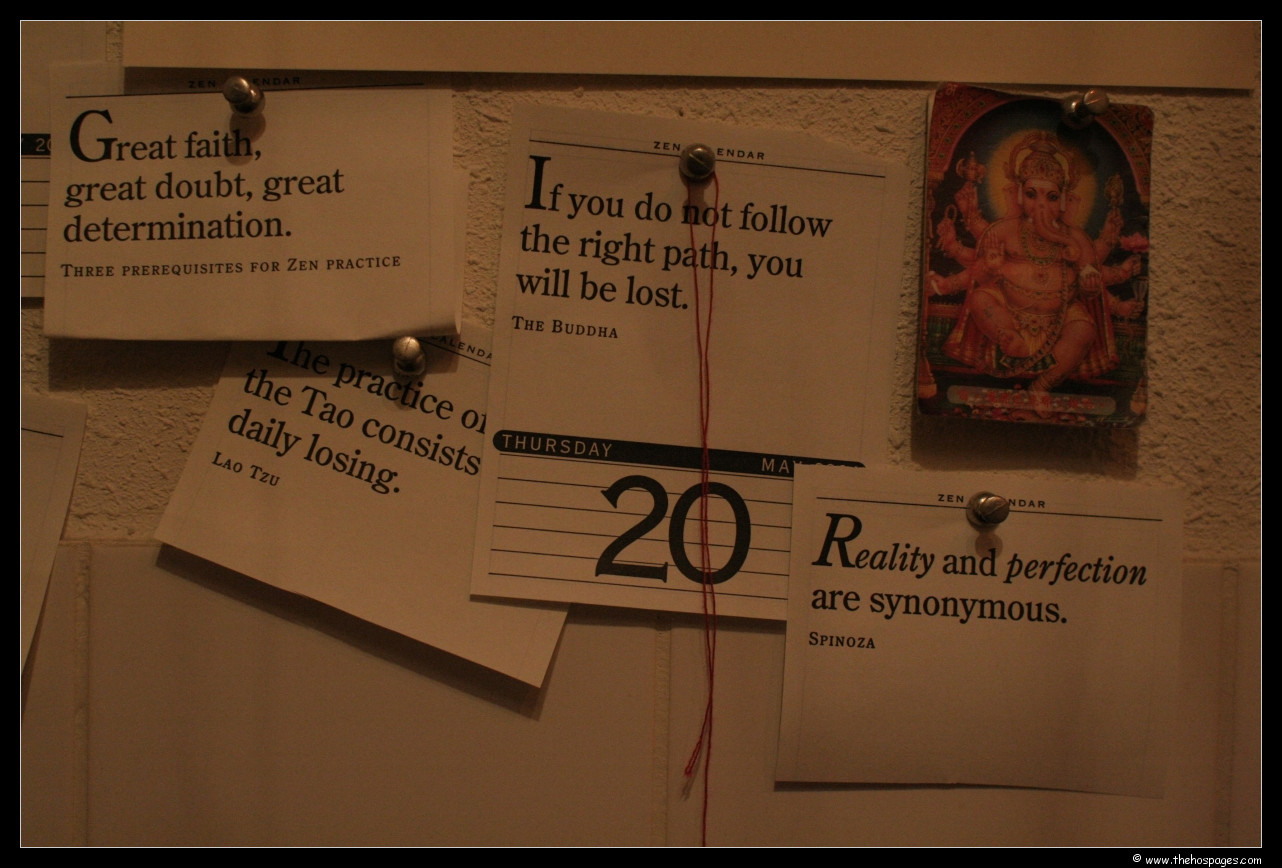 ZEN CALENDAR
Great faith,
great doubt, great
determination.
THREE PREREQUISITES FOR ZEN PRACTICE
20
CALENDAR
The practice of
the Tao consists
daily losing.
LAO TZU
ZEN CALENDAR
If you do not follow
the right path, you
will be lost.
THE BUDDHA
THURSDAY MAY
20
ZEN CALENDAR
Reality and perfection
are synonymous.
SPINOZA
© www.thehospages.com